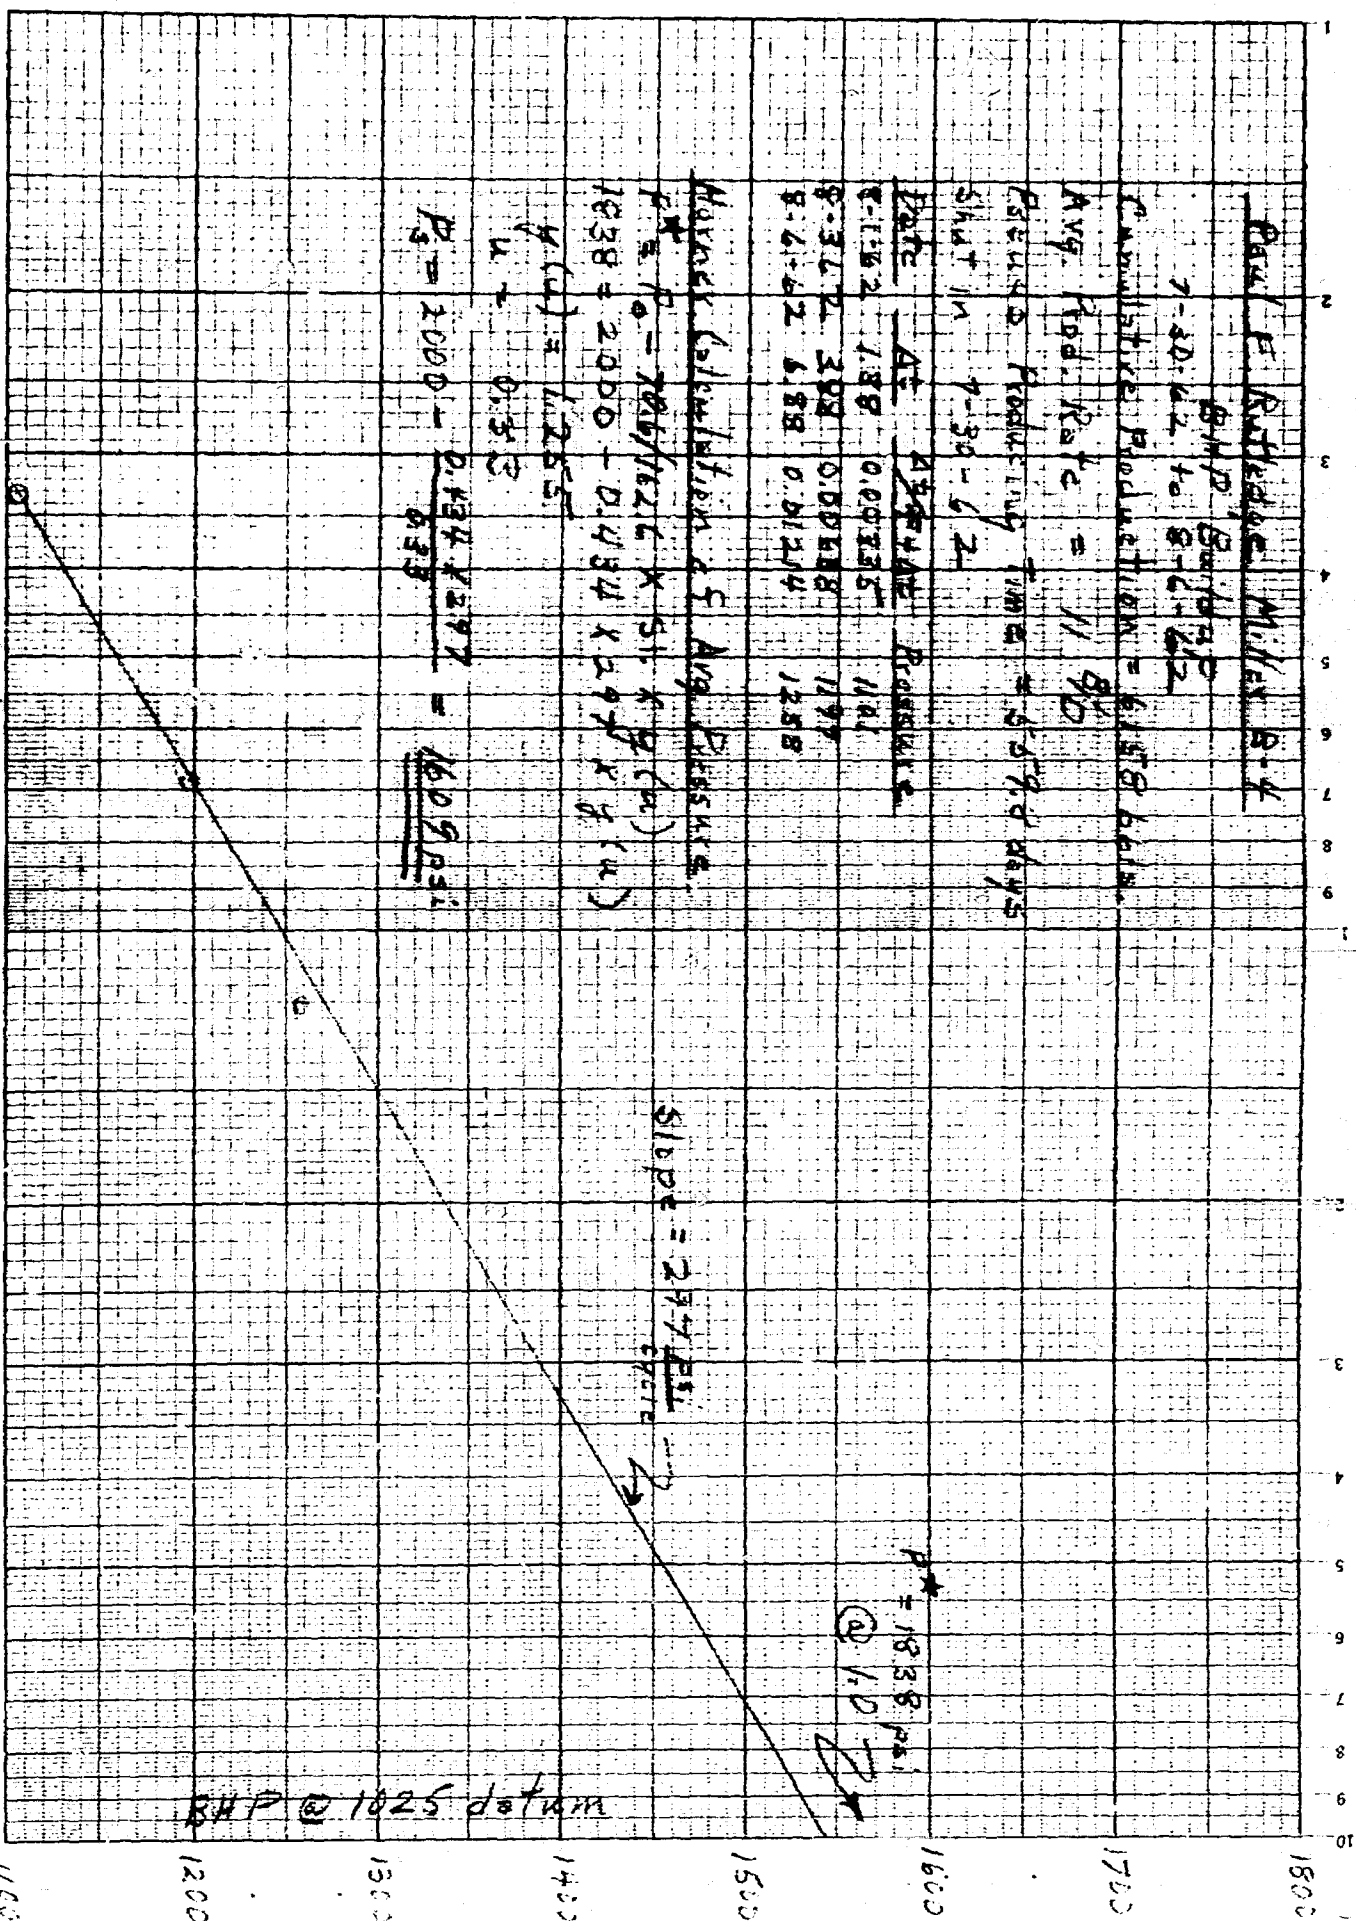 Paul F. Rutledge Miller B-4
BHP Buildup
7-30-62 to 8-6-62
Cumulative Production = 6158 bbls.
Avg. Prod. Rate = 11 B/D
Pseudo Producing Time = 559.8 days
Shut in 7-30-62
Date Δt Δt/t+Δt Pressure
8-1-62 1.88 0.00335 1101
8-3-62 3.88 0.00688 1197
8-6-62 6.88 0.01214 1258
Horner Calculation of Avg. Pressure
P* = Po - 70.6/162.6 x Sl. x y(u)
1838 = 2000 - 0.434 x 297 x y(u)
y(u) = 1.255
u = 0.33
Ps = 2000 - 0.434 x 297 / 0.33 = 1609 psi
Slope = 297 psi/cycle
P* = 1838 psi
@ 1.0
BHP @ 1025 datum
1 2 3 4 5 6 7 8 9 1 2 3 4 5 6 7 8 9 10
1100 1200 1300 1400 1500 1600 1700 1800